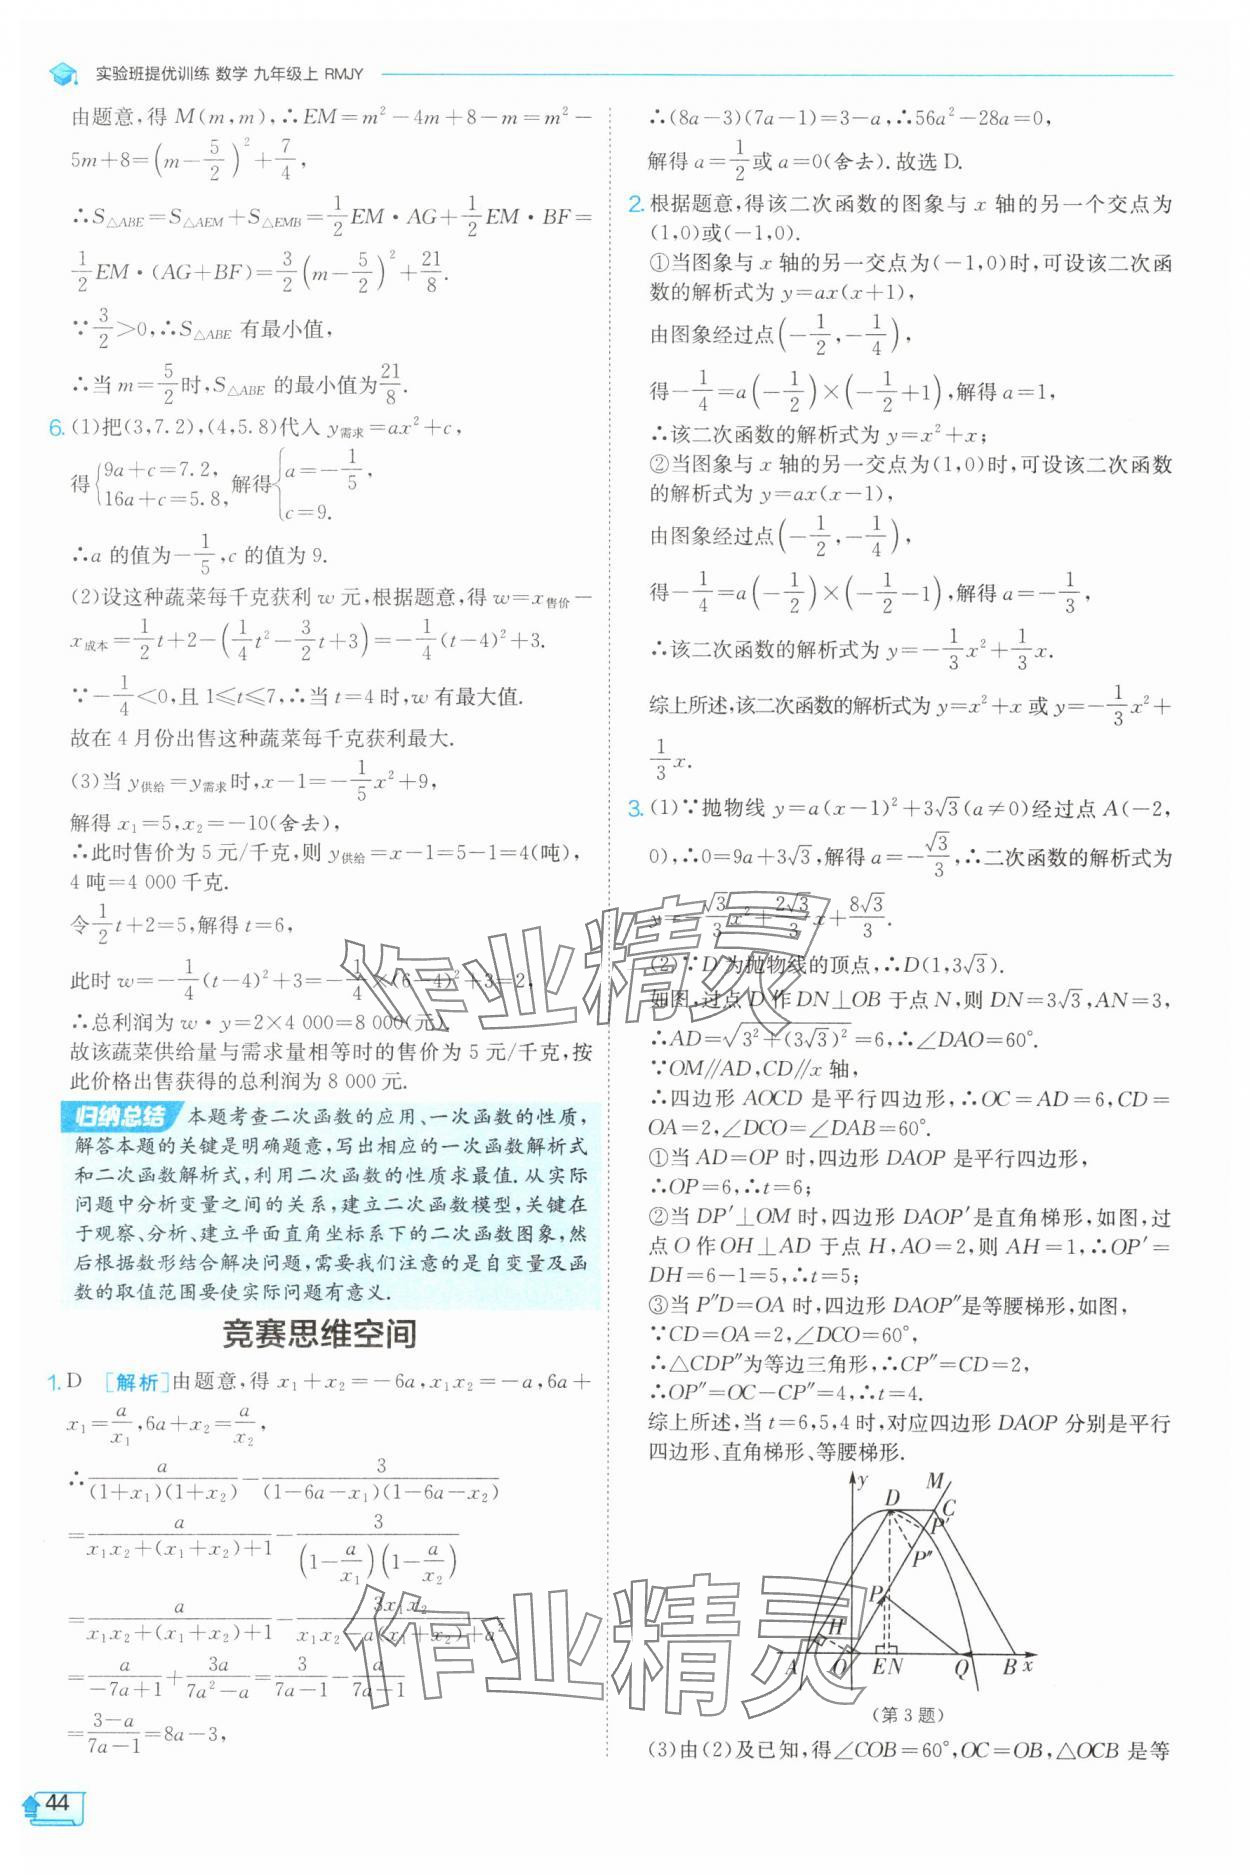 实验班提优训练 数学 九年级上 RMJY
由题意,得 M(m,m),∴EM=m²-4m+8-m=m²-
5m+8=(m-5/2)²+7/4,
∴S△ABE=S△AEM+S△EMB=1/2EM·AG+1/2EM·BF=
1/2EM·(AG+BF)=3/2(m-5/2)²+21/8.
∵3/2>0,∴S△ABE 有最小值,
∴当 m=5/2时,S△ABE 的最小值为21/8.
6. (1)把(3,7.2),(4,5.8)代入 y需求=ax²+c,
得{9a+c=7.2, 16a+c=5.8, 解得{a=-1/5, c=9.
∴a 的值为-1/5,c 的值为 9.
(2)设这种蔬菜每千克获利 w 元,根据题意,得 w=x售价-
x成本=1/2t+2-(1/4t²-3/2t+3)=-1/4(t-4)²+3.
∵-1/4<0,且 1≤t≤7,∴当 t=4 时,w 有最大值.
故在 4 月份出售这种蔬菜每千克获利最大.
(3)当 y供给=y需求时,x-1=-1/5x²+9,
解得 x₁=5,x₂=-10(舍去),
∴此时售价为 5 元/千克,则 y供给=x-1=5-1=4(吨),
4 吨=4 000 千克.
令1/2t+2=5,解得 t=6,
此时 w=-1/4(t-4)²+3=-1/4×(6-4)²+3=2,
∴总利润为 w·y=2×4 000=8 000(元).
故该蔬菜供给量与需求量相等时的售价为 5 元/千克,按
此价格出售获得的总利润为 8 000 元.
归纳总结 本题考查二次函数的应用、一次函数的性质,
解答本题的关键是明确题意,写出相应的一次函数解析式
和二次函数解析式,利用二次函数的性质求最值.从实际
问题中分析变量之间的关系,建立二次函数模型,关键在
于观察、分析、建立平面直角坐标系下的二次函数图象,然
后根据数形结合解决问题,需要我们注意的是自变量及函
数的取值范围要使实际问题有意义.
竞赛思维空间
1. D [解析]由题意,得 x₁+x₂=-6a,x₁x₂=-a,6a+
x₁=a/x₁,6a+x₂=a/x₂,
∴a/((1+x₁)(1+x₂))-3/((1-6a-x₁)(1-6a-x₂))
=a/(x₁x₂+(x₁+x₂)+1)-3/((1-a/x₁)(1-a/x₂))
=a/(x₁x₂+(x₁+x₂)+1)-3x₁x₂/(x₁x₂-a(x₁+x₂)+a²)
=a/(-7a+1)+3a/(7a²-a)=3/(7a-1)-a/(7a-1)
=(3-a)/(7a-1)=8a-3,
∴(8a-3)(7a-1)=3-a,∴56a²-28a=0,
解得 a=1/2或 a=0(舍去).故选 D.
2. 根据题意,得该二次函数的图象与 x 轴的另一个交点为
(1,0)或(-1,0).
①当图象与 x 轴的另一交点为(-1,0)时,可设该二次函
数的解析式为 y=ax(x+1),
由图象经过点(-1/2,-1/4),
得-1/4=a(-1/2)×(-1/2+1),解得 a=1,
∴该二次函数的解析式为 y=x²+x;
②当图象与 x 轴的另一交点为(1,0)时,可设该二次函数
的解析式为 y=ax(x-1),
由图象经过点(-1/2,-1/4),
得-1/4=a(-1/2)×(-1/2-1),解得 a=-1/3,
∴该二次函数的解析式为 y=-1/3x²+1/3x.
综上所述,该二次函数的解析式为 y=x²+x 或 y=-1/3x²+
1/3x.
3. (1)∵抛物线 y=a(x-1)²+3√3(a≠0)经过点 A(-2,
0),∴0=9a+3√3,解得 a=-√3/3,∴二次函数的解析式为
y=-√3/3x²+2√3/3x+8√3/3.
(2)∵D 为抛物线的顶点,∴D(1,3√3).
如图,过点 D 作 DN⊥OB 于点 N,则 DN=3√3,AN=3,
∴AD=√(3²+(3√3)²)=6,∴∠DAO=60°.
∵OM∥AD,CD∥x 轴,
∴四边形 AOCD 是平行四边形,∴OC=AD=6,CD=
OA=2,∠DCO=∠DAB=60°.
①当 AD=OP 时,四边形 DAOP 是平行四边形,
∴OP=6,∴t=6;
②当 DP′⊥OM 时,四边形 DAOP′是直角梯形,如图,过
点 O 作 OH⊥AD 于点 H,AO=2,则 AH=1,∴OP′=
DH=6-1=5,∴t=5;
③当 P″D=OA 时,四边形 DAOP″是等腰梯形,如图,
∵CD=OA=2,∠DCO=60°,
∴△CDP″为等边三角形,∴CP″=CD=2,
∴OP″=OC-CP″=4,∴t=4.
综上所述,当 t=6,5,4 时,对应四边形 DAOP 分别是平行
四边形、直角梯形、等腰梯形.
y M
D C
P′
P″
P
H
A O E N Q B x
(第 3 题)
(3)由(2)及已知,得∠COB=60°,OC=OB,△OCB 是等
44
作业精灵
作业精灵